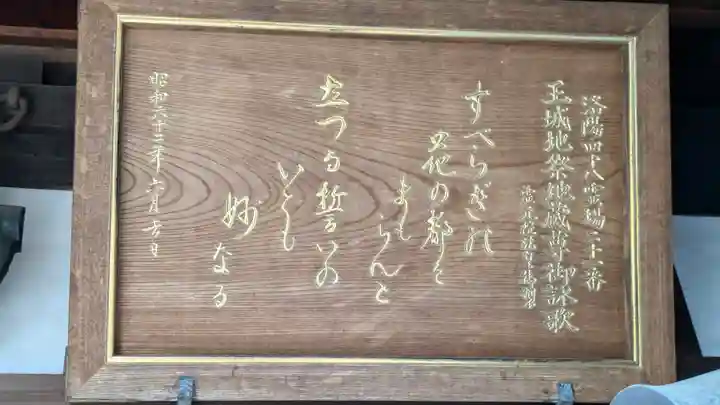 洛陽四十八霊場二十一番
王城地祭地蔵尊御詠歌
すべらぎの
花の都を
まもらんと
たつる誓いの
いとも
妙なる
昭和六十三年六月吉日